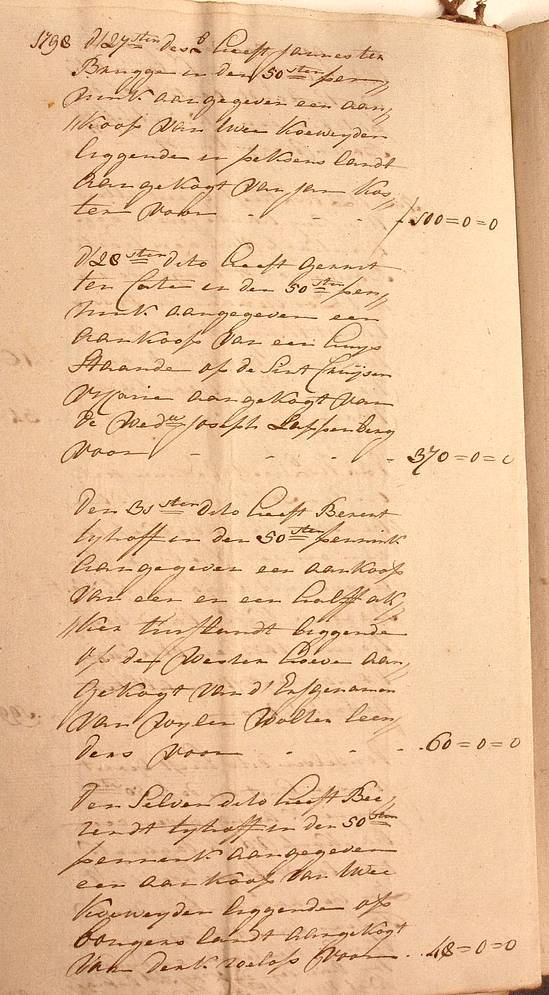 1798 d'27sten des heeft Jannes ten
Brugge in den 50sten pen,,
nink aangegeven een aan,,
,,koop van twee koeweyden
liggende in landt
aangekogt van Jan Kos,,
ten voor - - - ƒ 500=0=0
d'28sten dito heeft Gerrit
ten Cate in den 50sten pen,,
nink aangegeven een
aankoop van een huys
staande op de Sint
aangekogt van
de Wedue Joseph Lappenberg
voor - - - - 370=0=0
Den 31sten dito heeft Berent
tyhoff in den 50sten pennink
aangegeven een aankoop
van een en een halff ak,,
,,ker turflandt liggende
op de Wester hoeve aan,,
gekogt van d'Erfgenamen
van wylen Wolter Leen,,
ders voor - - - 60=0=0
Den Selven dito heeft Bee,,
rendt tyhoff in den 50sten
pennink aangegeven
een aankoop van twee
koeweyden liggende op
bongers landt aangekogt
van Derk roelofs voor - - 48=0=0